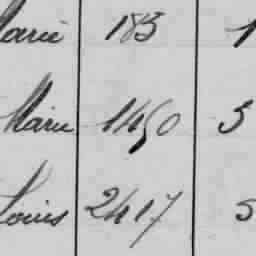 Marie 183 1
Marie 1450 5
Louis 2417 5